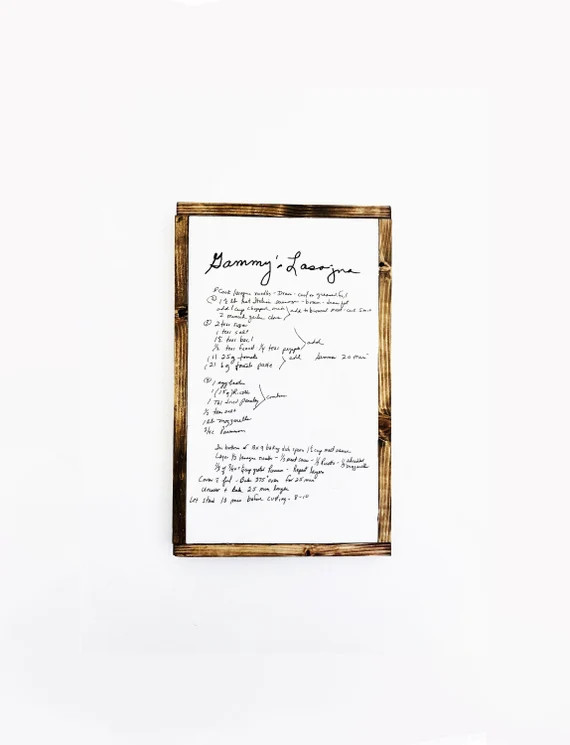 Gammy's Lasagna
Cook lasagna noodles - Drain - cool on greased foil
① 1½ lb hot Italian sausage - brown - drain fat
add 1 cup chopped onion
2 minced garlic cloves
add to browned meat - cook 5 min
② 2 teas sugar
1 teas salt
1½ teas basil
½ teas fennel ¼ teas pepper
add
(1) 25g tomato
(2) 6g tomato paste
add Simmer 20 min
③ 1 egg beaten
1 (15g) Ricotta
1 Tbs dried parsley
½ teas salt
combine
1 lb mozzarella
3/4 c Parmesan
In bottom of 13x9 baking dish spoon 1½ cup meat sauce
Layer ⅓ lasagna noodles - ⅓ meat sauce - ⅓ Ricotta - ⅓ shredded mozzarella
⅓ of 3/4 c grated Parmesan - Repeat layers
Cover c foil - Bake 375° oven for 25 min
Uncover & Bake 25 min longer
Let stand 10 min before cutting. 8-10